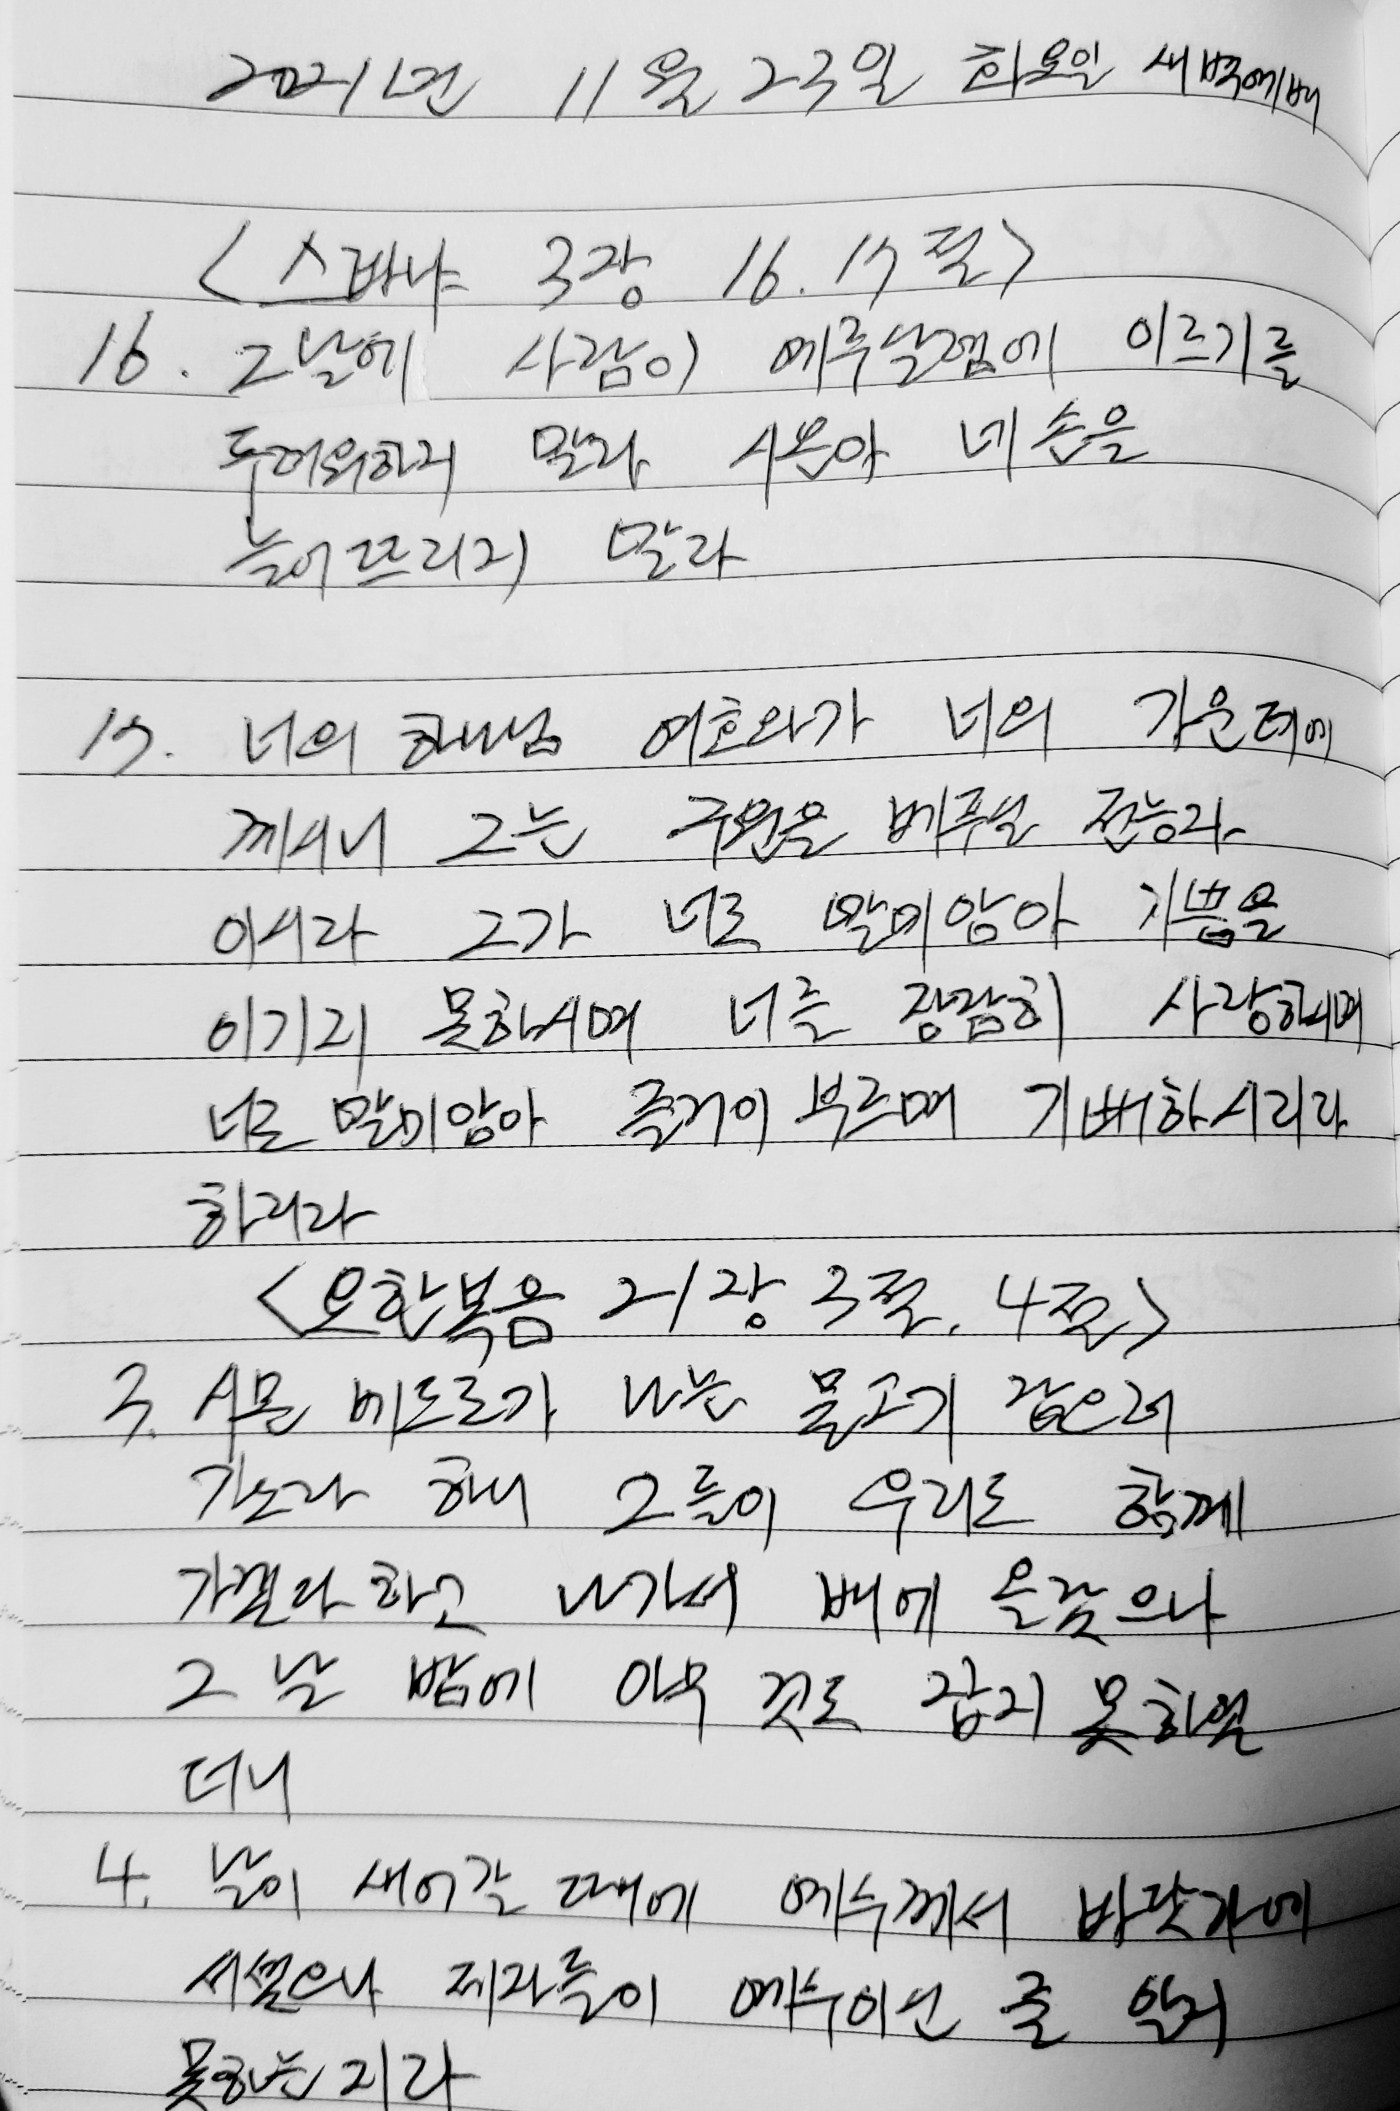 2021년 11월 23일 화요일 새벽예배
<스바냐 3장 16.17절>
16. 그날에 사람이 예루살렘에 이르기를
두려워하지 말라 시온아 네 손을
늘어뜨리지 말라
17. 너의 하나님 여호와가 너의 가운데에
계시니 그는 구원을 베푸실 전능자
이시라 그가 너로 말미암아 기쁨을
이기지 못하시며 너를 잠잠히 사랑하시며
너로 말미암아 즐거이 부르며 기뻐하시리라
하리라
<요한복음 21장 3절, 4절>
3. 시몬 베드로가 나는 물고기 잡으러
가노라 하니 그들이 우리도 함께
가겠다 하고 나가서 배에 올랐으나
그 날 밤에 아무 것도 잡지 못하였
더니
4. 날이 새어갈 때에 예수께서 바닷가에
서셨으나 제자들이 예수이신 줄 알지
못하는지라